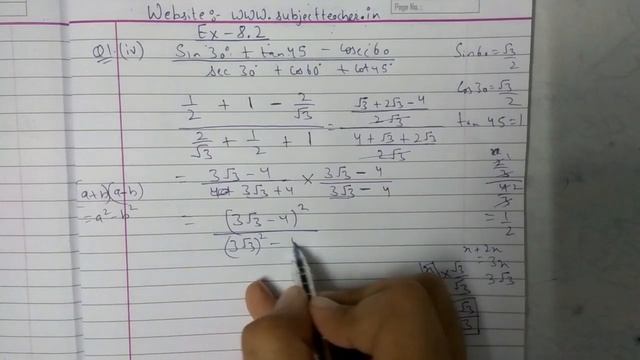 Website:- www.subjectteacher.in
Page No.:
Ex-8.2
Q1.(iv) Sin30° + tan45 - Cosec60
sec30° + cos60° + cot45°
Sin60 = √3/2
Cos30 = √3/2
tan45 = 1
1/2 + 1 - 2/√3
2/√3 + 1/2 + 1
= √3 + 2√3 - 4
2√3
4 + √3 + 2√3
2√3
= 3√3 - 4 × 3√3 - 4
3√3 + 4 3√3 - 4
(a+b)(a-b)
= a² - b²
= (3√3 - 4)²
(3√3)² -
= 1/2
x + 2x
= 3x
3√3
× √3
√3